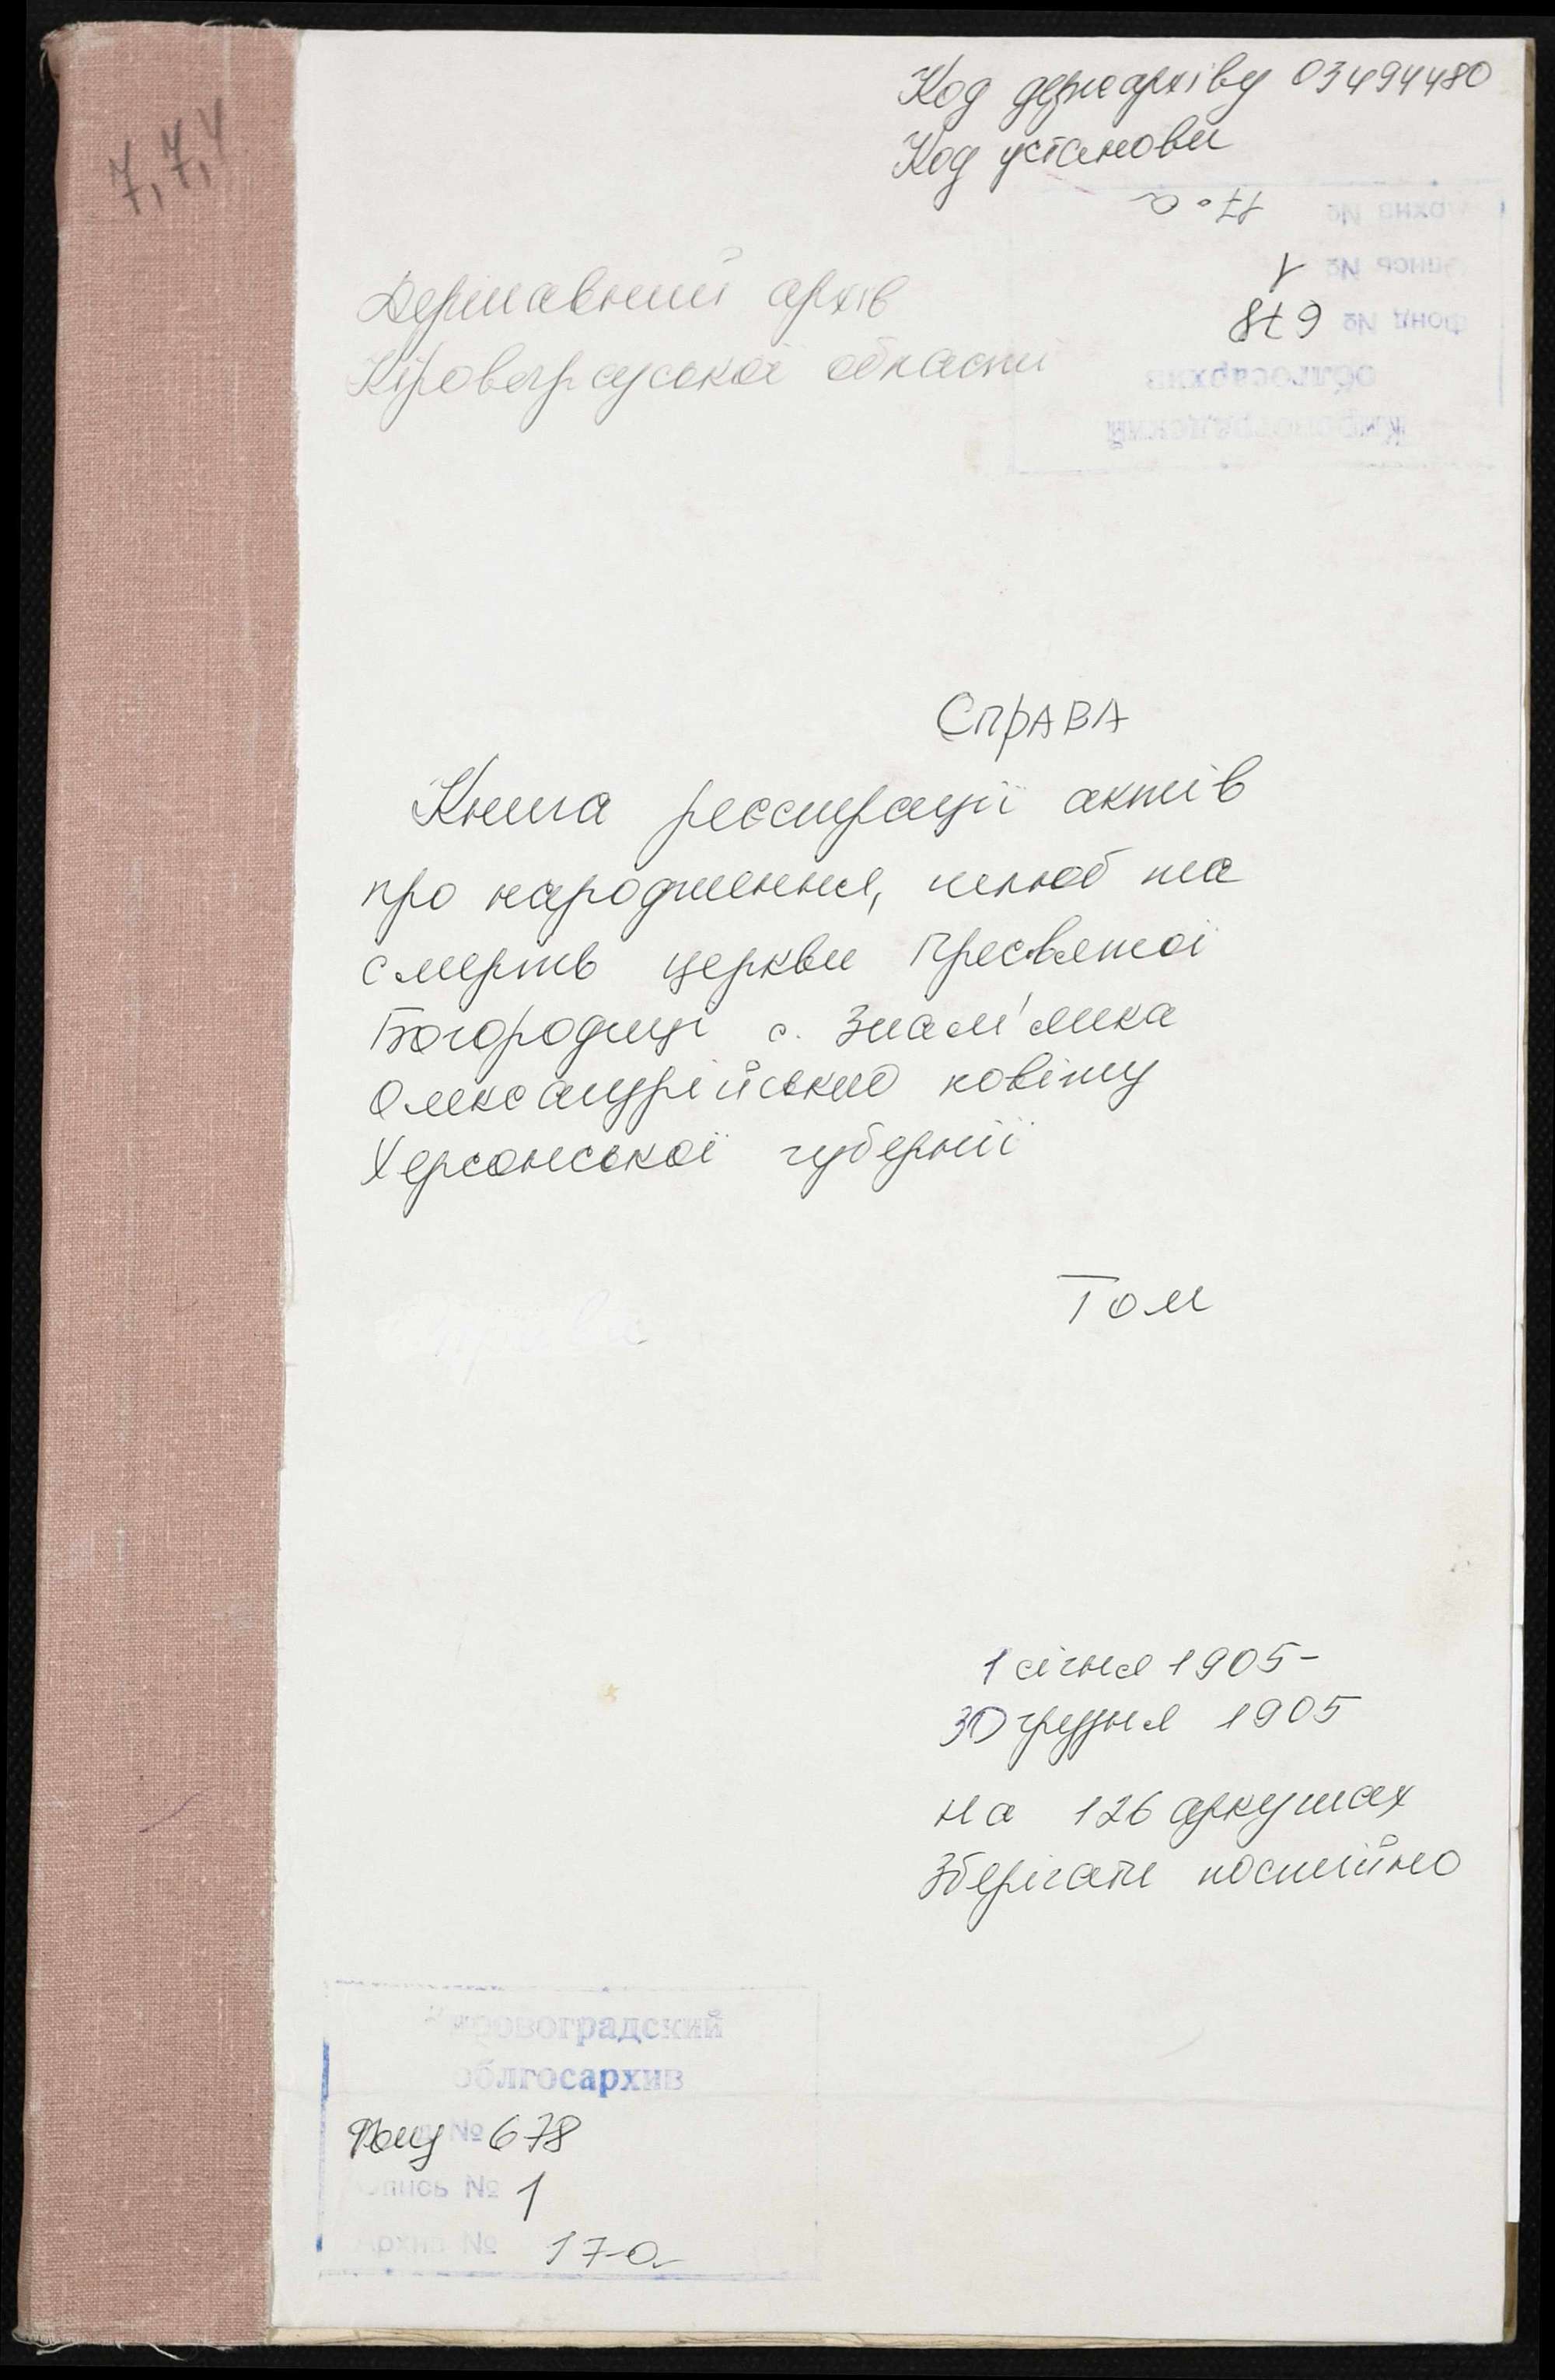 Код держархіву 03494480
Код установи
7,7,4
Кировоградский
облгосархив
Фонд № 678
Опись № 1
Архив № 17-а
Державний архів
Кіровоградської області
СПРАВА
Книга реєстрації актів
про народження, шлюб та
смерть церкви Пресвятої
Богородиці с. Знам'янка
Олександрійського повіту
Херсонської губернії
Том
1 січня 1905-
30 грудня 1905
на 126 аркушах
Зберігати постійно
Кировоградский
облгосархив
Фонд № 678
Опись № 1
Архив № 17-а